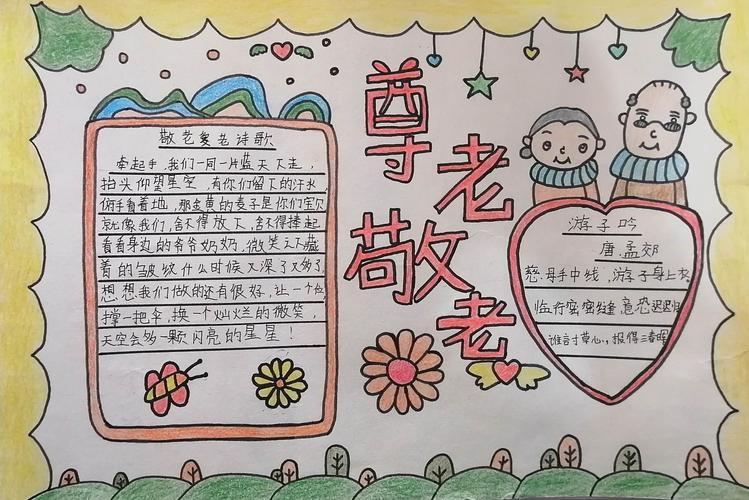 敬老爱老诗歌
牵起手,我们一同一片蓝天下走,
抬头仰望星空,有你们留下的汗水,
俯手看着地,那金黄的麦子是你们宝贝
就像我们,舍不得放下,舍不得捧起
看看身边的爷爷奶奶,微笑之下藏
着的皱纹什么时候又深了又多了
想想我们做的还有很好,让一个位
撑一把伞,换一个灿烂的微笑,
天空会多一颗闪亮的星星!
尊
老
敬
老
游子吟
唐孟郊
慈母手中线,游子身上衣
临行密密缝,意恐迟迟归
谁言寸草心,报得三春晖